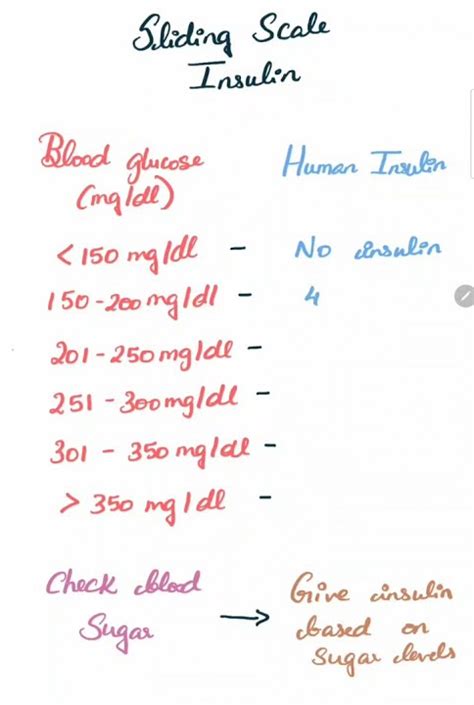 Sliding Scale
Insulin
Blood glucose
(mg/dl)
Human Insulin
< 150 mg/dl - No insulin
150-200 mg/dl - 4
201-250 mg/dl -
251-300 mg/dl -
301 - 350 mg/dl -
> 350 mg/dl -
Check blood
Sugar
→
Give insulin
based on
Sugar levels